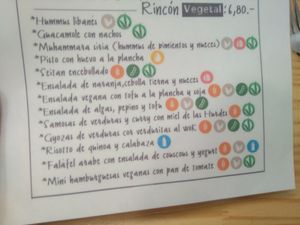 Rincón Vegetal: 6,80.-
*Hummus libanés
*Guacamole con nachos
*Muhammara siria (hummus de pimientos y nueces)
*Pisto con huevo a la plancha
*Seitan encebollado
*Ensalada de naranja, cebolla tierna y nueces
*Ensalada vegana con tofu a la plancha y soja
*Ensalada de algas, pepino y tofu
*Samosas de verduras y curry con miel de las Hurdes
*Gyozas de verduras con verduritas al wok
*Risotto de quinoa y calabaza
*Falafel árabe con ensalada de couscous y yogurt
*Mini hamburguesas veganas con pan de tomate